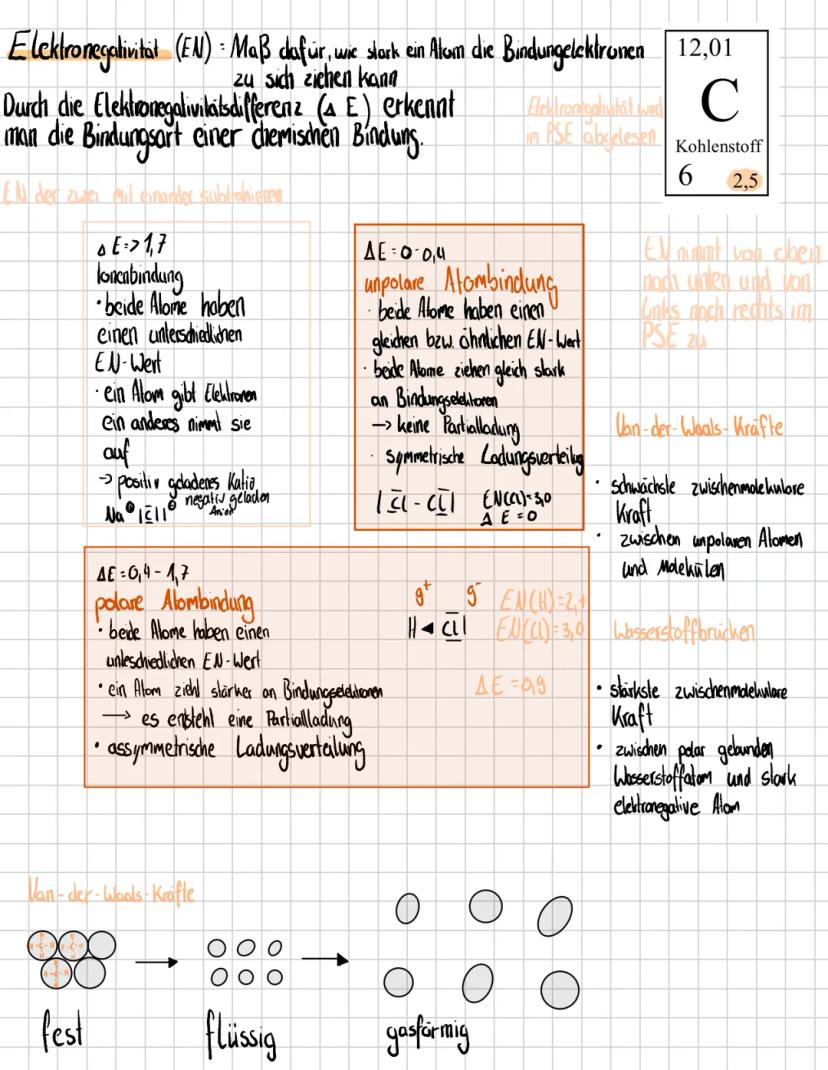 Elektronegativität (EN) = Maß dafür, wie stark ein Atom die Bindungelektronen
zu sich ziehen kann
Durch die Elektronegativitätsdifferenz (Δ E) erkennt
man die Bindungsart einer chemischen Bindung.
Elektronegativität wird
im PSE abgelesen
12,01
C
Kohlenstoff
6 2,5
EN der zwei mit einander subtrahieren
Δ E => 1,7
Ionenbindung
• beide Atome haben
einen unterschiedlichen
EN-Wert
• ein Atom gibt Elektronen
ein anderes nimmt sie
auf
-> positiv geladenes Katio
negativ geladen
Anion
Na⊕ |C̅l|⊖
ΔE = 0-0,4
unpolare Atombindung
• beide Atome haben einen
gleichen bzw. ähnlichen EN-Wert
• beide Atome ziehen gleich stark
an Bindungselektoren
-> keine Partialladung
• symmetrische Ladungsverteilug
|C̅l - C̅l| EN(Cl)=3,0
Δ E = 0
EN nimmt von oben
nach unten und von
links nach rechts im
PSE zu
Van-der-Waals-Kräfte
• schwächste zwischenmolekulare
Kraft
• zwischen unpolaren Atomen
und Molekülen
ΔE = 0,4 - 1,7
polare Atombindung
• beide Atome haben einen
unteschiedlichen EN-Wert
• ein Atom zieht stärker an Bindungselektronen
—> es ensteht eine Partiallladung
• assymmetrische Ladungsverteilung
g⁺ g⁻
H ◂ C̅l|
EN(H)=2,1
EN(Cl)=3,0
ΔE = 0,9
Wasserstoffbrücken
• stärkste zwischenmolekulare
Kraft
• zwischen polar gebunden
Wasserstoffatom und stark
elektronegative Atom
Van-der-Waals-Kräfte
fest flüssig gasförmig